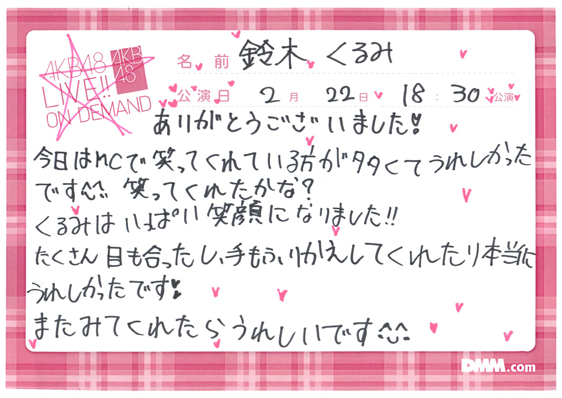 AKB48
LIVE!!
ON DEMAND
AKB
48
名前 鈴木 くるみ
公演日 2月 22日 18:30 公演
ありがとうございました!
今日はMCで笑ってくれている方が多くてうれしかった
です 笑ってくれたかな?
くるみはいっぱい笑顔になりました!!
たくさん目も合ったし、手もふりかえしてくれたり本当に
うれしかったです!
またみてくれたらうれしいです^^
DMM.com